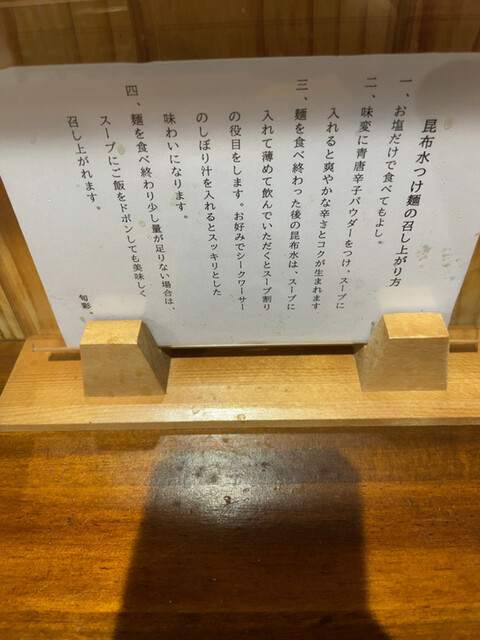 昆布水つけ麺の召し上がり方
一、お塩だけで食べてもよし。
二、味変に青唐辛子パウダーをつけ、スープに
入れると爽やかな辛さとコクが生まれます
三、麺を食べ終わった後の昆布水は、スープに
入れて薄めて飲んでいただくとスープ割り
の役目をします。お好みでシークワーサー
のしぼり汁を入れるとスッキリとした
味わいになります。
四、麺を食べ終わり少し量が足りない場合は、
スープにご飯をドボンしても美味しく
召し上がれます。
旬彩。